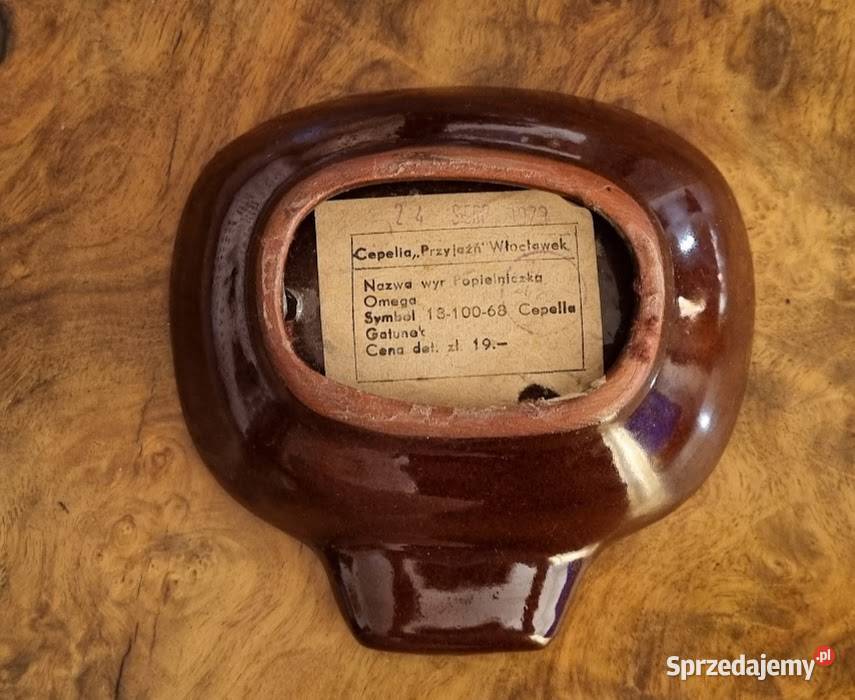 24 SIERP 1979
Cepelia „Przyjaźń" Włocławek
Nazwa wyr Popielniczka
Omega
Symbol 13-100-68 Cepelia
Gatunek
Cena det. zł. 19.—
Sprzedajemy.pl